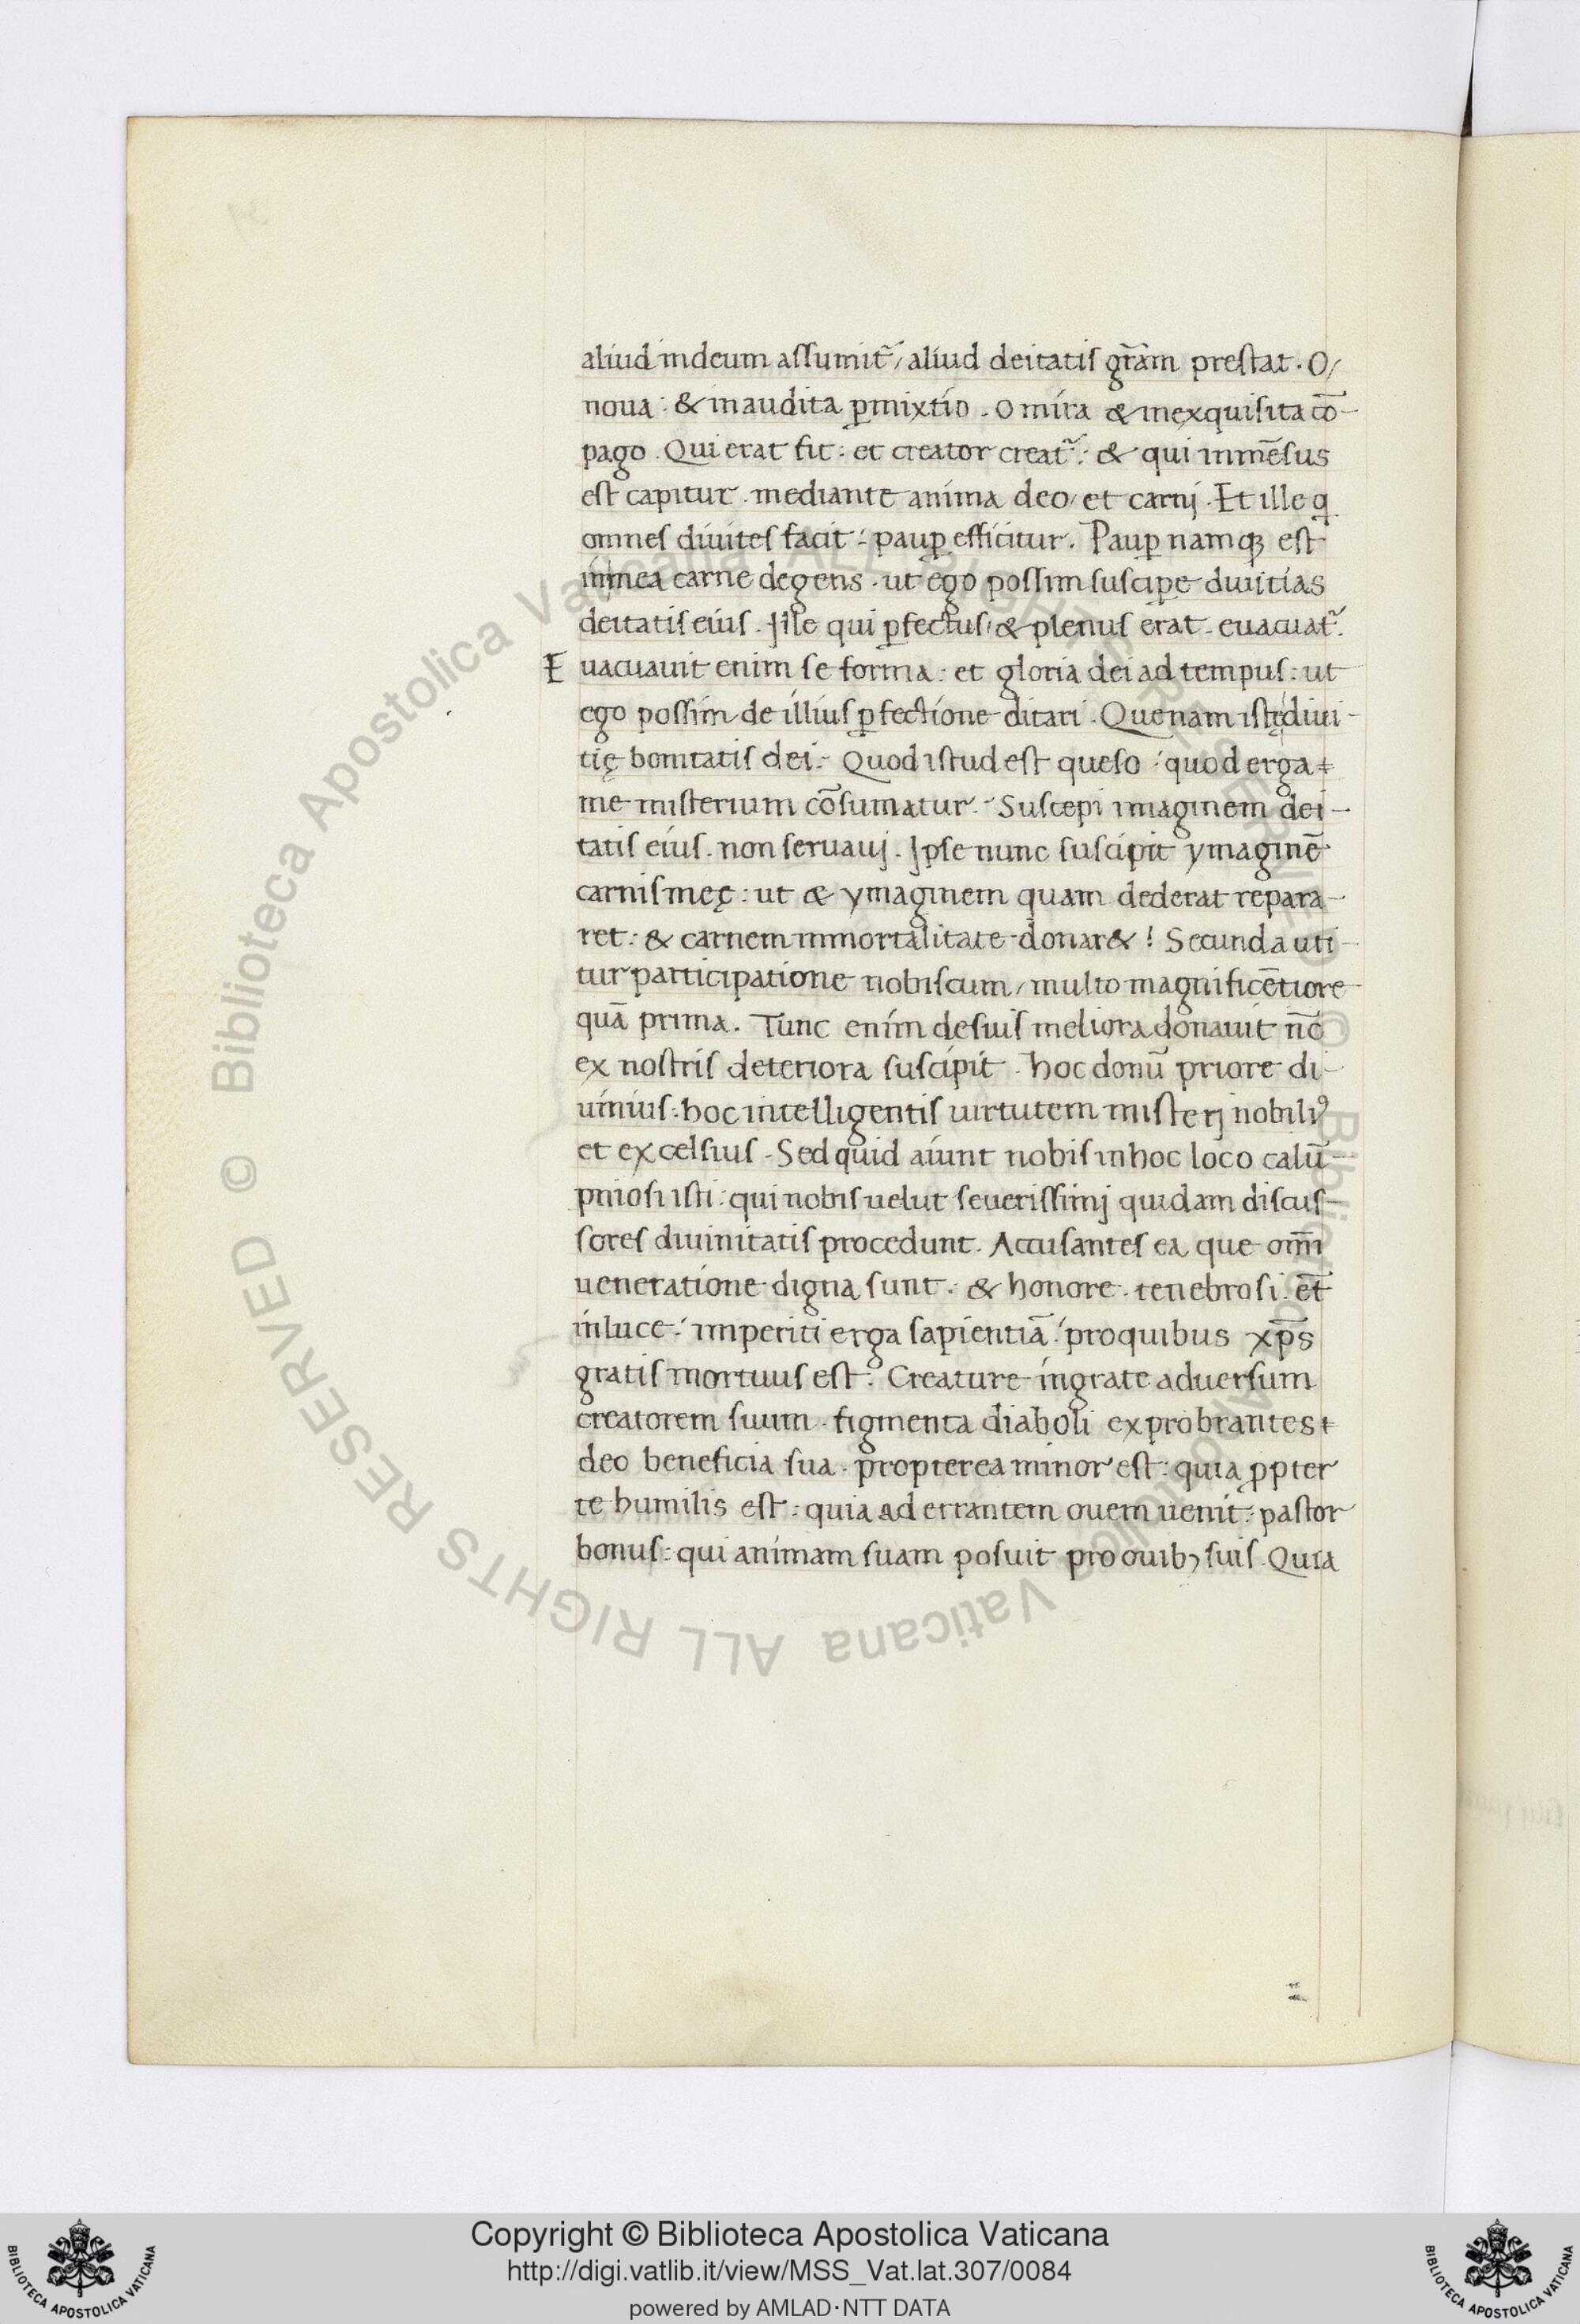 aliud indeum assumit᷑ / aliud deitatis gr̄am prestat . O /
noua : & inaudita ꝑmixtio . O mira & inexquisita cō-
pago . Qui erat fit : et creator creat᷑ : & qui inmēsus
est capitur . mediante anima deo / et carnj . Et ille q
omnes diuites facit : pauꝑ efficitur . Pauꝑ namqꝫ est
inmea carne degens . ut ego possim susciꝑe diuitias
deitatis eius . Jlle qui ꝑfectus / & plenus erat . euacuat᷑ .
Euacuauit enim se forma : et gloria dei ad tempus : ut
ego possim de illius ꝑfectione ditari . Quenam istę diui-
tię bonitatis dei : Quod istud est queso : quod erga
me misterium cōsumatur : Suscepi imaginem dei-
tatis eius . non seruauj . Jpse nunc suscipit ymaginē
carnis meę : ut & ymaginem quam dederat repara-
ret : & carnem inmortalitate donar& ! Secunda uti-
tur participatione nobiscum / multo magnificētiore
quā prima . Tunc enim desuis meliora donauit nc̄
ex nostris deteriora suscipit . hoc donū priore di-
uinius : hoc intelligentis uirtutem misterj nobiliꝰ
et excelsius . Sed quid aiunt nobis inhoc loco calū-
pniosi isti : qui nobis uelut seuerissimj quidam discus-
sores diuinitatis procedunt . Accusantes ea que om̄i
ueneratione digna sunt : & honore . tenebrosi . et̄
inluce : imperiti erga sapientiā : proquibus xp̄s
gratis mortuus est : Creature ingrate aduersum
creatorem suum . figmenta diaboli exprobrantes
deo beneficia sua . propterea minor est : quia ꝓpter
te humilis est : quia ad errantem ouem uenit : pastor
bonus : qui animam suam posuit pro ouibꝫ suis . Quia
© Biblioteca Apostolica Vaticana ALL RIGHTS RESERVED © Biblioteca Apostolica Vaticana ALL RIGHTS RESERVED
Copyright © Biblioteca Apostolica Vaticana
http://digi.vatlib.it/view/MSS_Vat.lat.307/0084
powered by AMLAD·NTT DATA
BIBLIOTECA APOSTOLICA VATICANA
BIBLIOTECA APOSTOLICA VATICANA